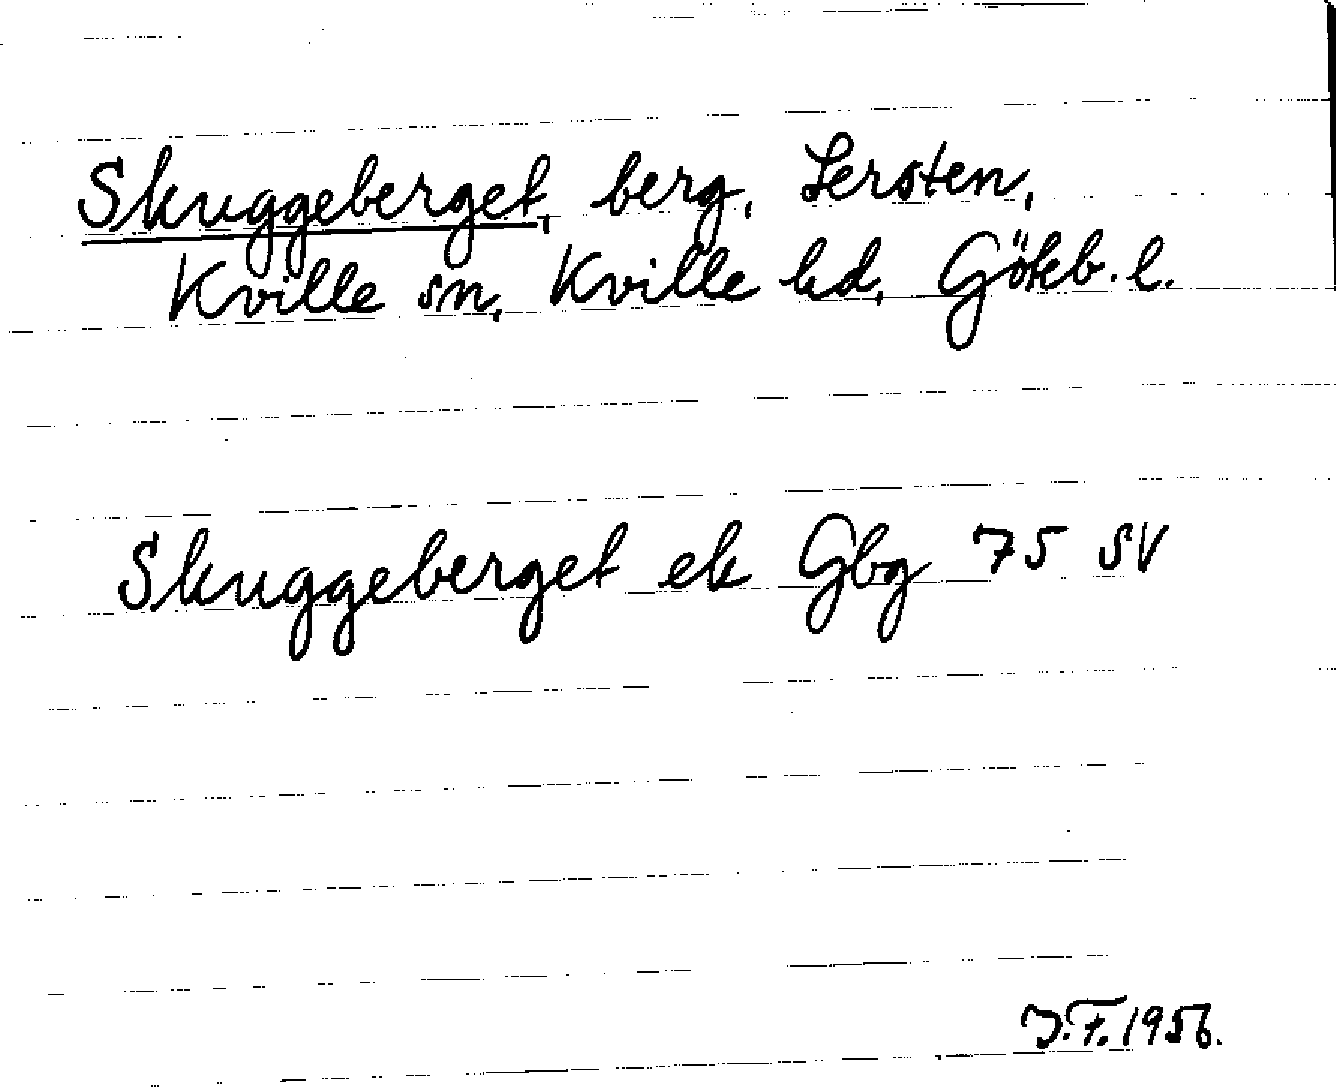 Skuggeberget, berg, Lersten,
Kville sn, Kville hd, Götеb. l.
Skuggeberget ek Gbg 75 SV
J.F. 1956.